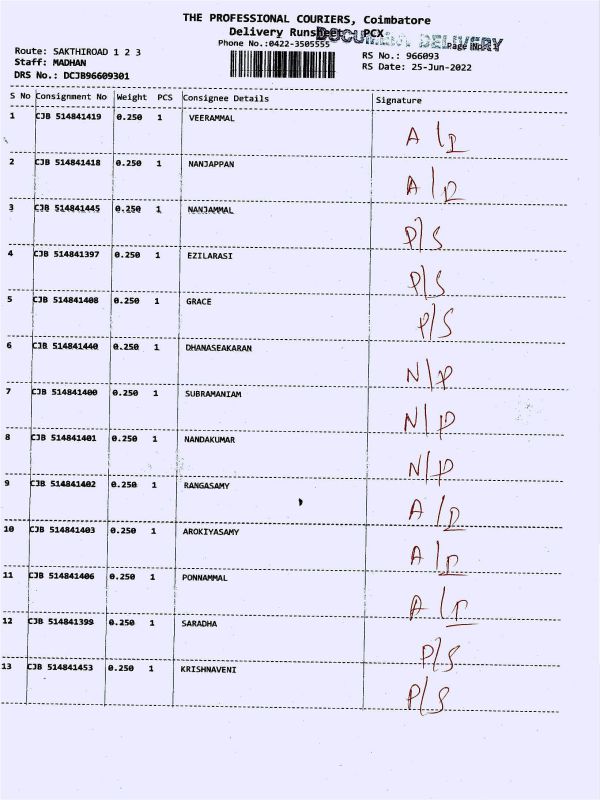 THE PROFESSIONAL COURIERS, Coimbatore
Delivery Runsheet PCX
DOCUMENT DELIVERY
Phone No.:0422-3505555
Route: SAKTHIROAD 1 2 3
RS No.: 966093
Staff: MADHAN
RS Date: 25-Jun-2022
DRS No.: DCJB96609301
S No Consignment No Weight PCS Consignee Details Signature
1 CJB 514841419 0.250 1 VEERAMMAL A/D
2 CJB 514841418 0.250 1 NANJAPPAN A/D
3 CJB 514841445 0.250 1 NANJAMMAL P/S
4 CJB 514841397 0.250 1 EZILARASI P/S
5 CJB 514841408 0.250 1 GRACE P/S
6 CJB 514841440 0.250 1 DHANASEAKARAN N/P
7 CJB 514841400 0.250 1 SUBRAMANIAM N/P
8 CJB 514841401 0.250 1 NANDAKUMAR N/P
9 CJB 514841402 0.250 1 RANGASAMY A/D
10 CJB 514841403 0.250 1 AROKIYASAMY A/D
11 CJB 514841406 0.250 1 PONNAMMAL A/D
12 CJB 514841399 0.250 1 SARADHA P/S
13 CJB 514841453 0.250 1 KRISHNAVENI P/S